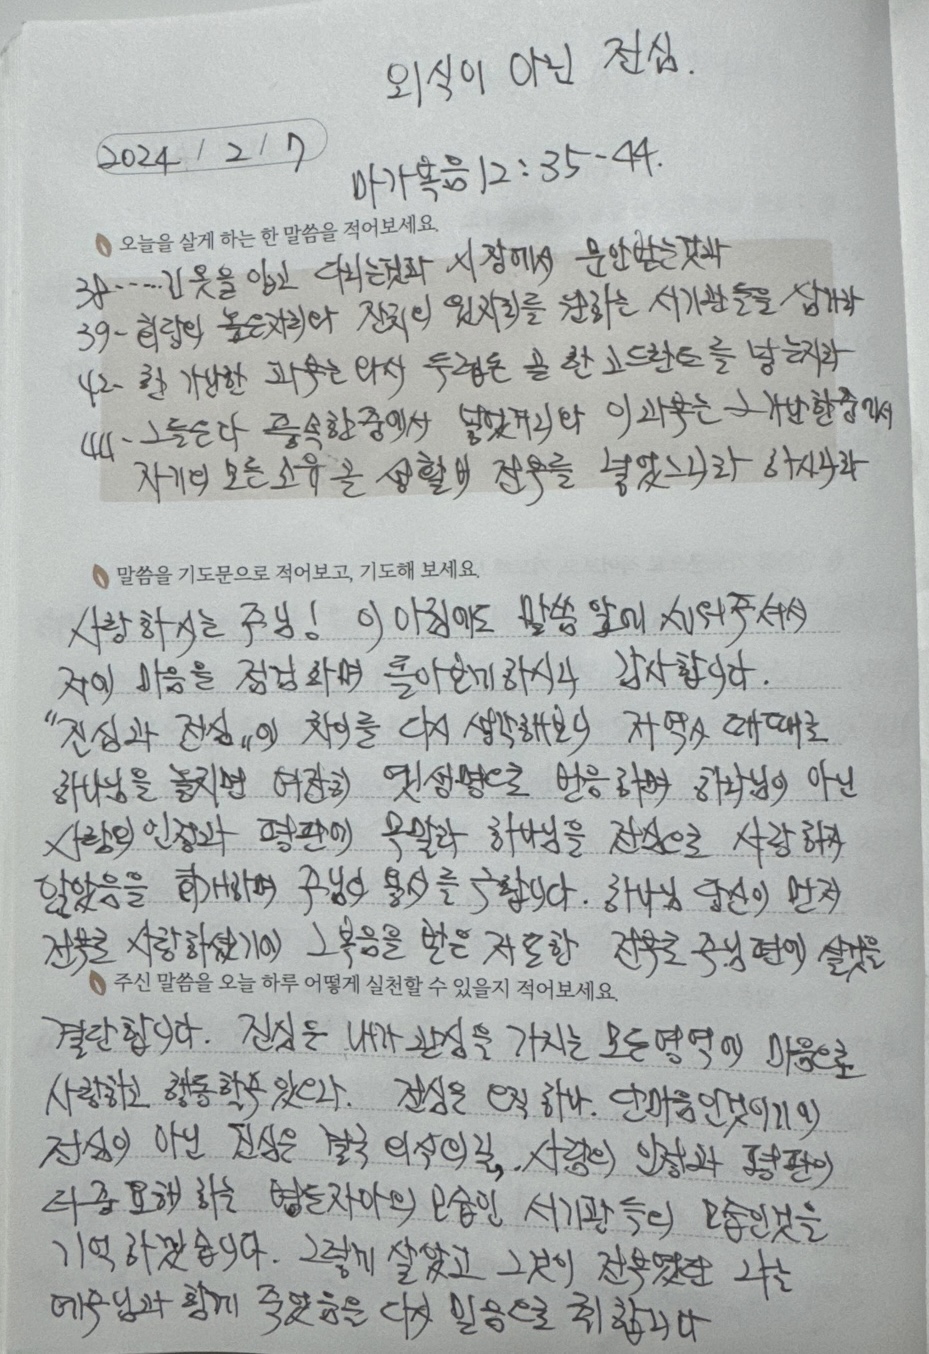 외식이 아닌 전심.
2024 / 2 / 7
마가복음 12 : 35-44.
오늘을 살게 하는 한 말씀을 적어보세요.
38-.... 긴 옷을 입고 다니는것과 시장에서 문안받는것과
39- 회당의 높은자리와 잔치의 윗자리를 원하는 서기관들을 삼가라
42- 한 가난한 과부는 와서 두렙돈 곧 한 고드란트를 넣는지라
44- 그들은다 풍족한중에서 넣었거니와 이 과부는 그 가난한중에서
자기의 모든 소유 곧 생활비 전부를 넣었느니라 하시니라
말씀을 기도문으로 적어보고, 기도해 보세요.
사랑하시는 주님! 이 아침에도 말씀 앞에 세워주셔서
저의 마음을 점검하며 돌아보게하시니 감사합니다.
"진심과 전심"의 차이를 다시 생각해보니 저 역시 때때로
하나님을 놓치면 여전히 옛생명으로 반응하며 하나님이 아닌
사람의 인정과 평판에 목말라 하나님을 전심으로 사랑하지
않았음을 회개하며 주님의 용서를 구합니다. 하나님 당신이 먼저
전부로 사랑하셨기에 그 복음을 받은 저 또한 전부로 주님 편에 살것을
주신 말씀을 오늘 하루 어떻게 실천할 수 있을지 적어보세요.
결단합니다. 진심은 내가 관심을 가지는 모든영역에 마음으로
사랑하고 행동할수있으나. 전심은 오직 하나. 한마음인것이기에
전심이 아닌 진심은 결국 외식의길, 사람의 인정과 평판이
더 중요해 하는 병든자아의 모습인 서기관들의 모습인것을
기억하겠습니다. 그렇게 살았고 그것이 전부였던 나는
예수님과 함께 죽었음을 다시 믿음으로 취합니다